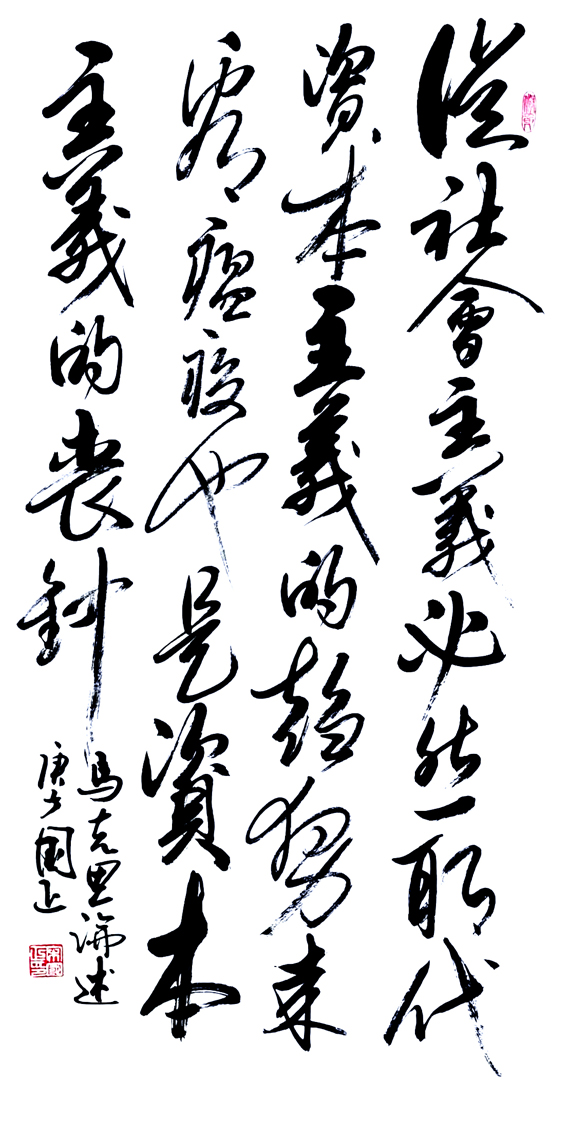 從社會主義必然取代
資本主義的趨勢來
看瘟疫也是資本
主義的喪鈡
馬克思論述
庚子國正